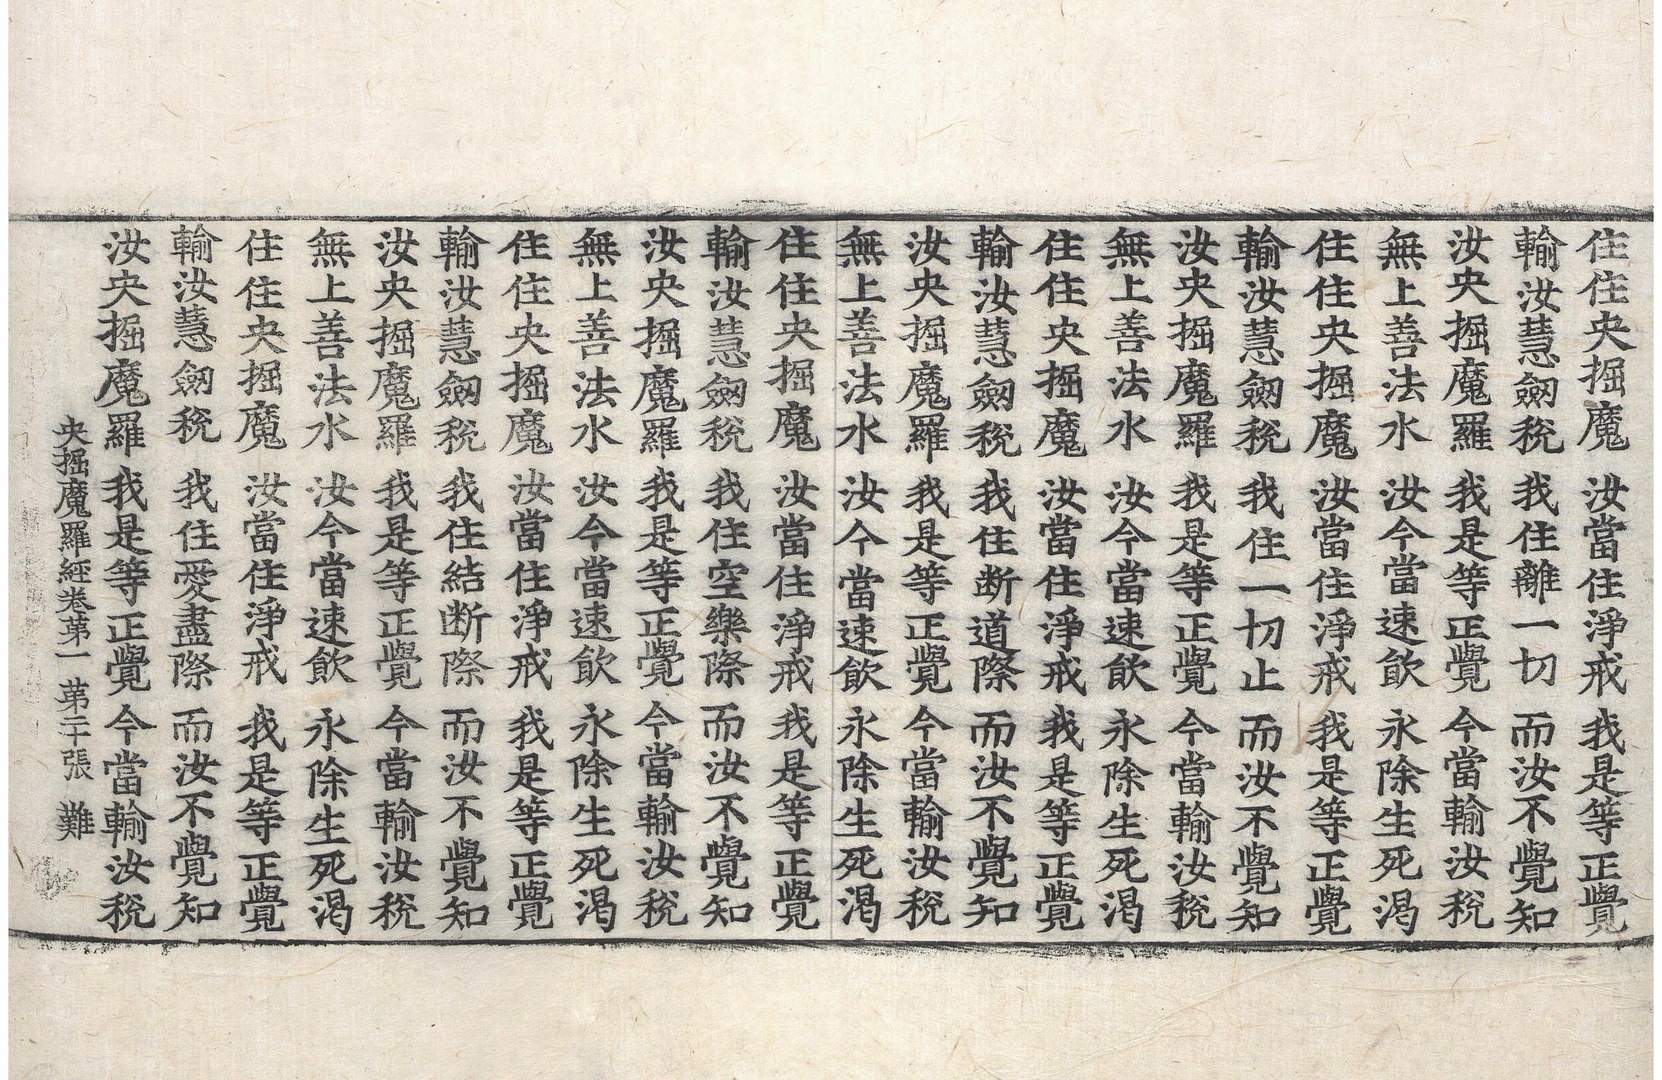 住住央掘魔 汝當住淨戒 我是等正覺
輸汝慧劒稅 我住離一切 而汝不覺知
汝央掘魔羅 我是等正覺 今當輸汝稅
無上善法水 汝今當速飮 永除生死渴
住住央掘魔 汝當住淨戒 我是等正覺
輸汝慧劒稅 我住一切止 而汝不覺知
汝央掘魔羅 我是等正覺 今當輸汝稅
無上善法水 汝今當速飮 永除生死渴
住住央掘魔 汝當住淨戒 我是等正覺
輸汝慧劒稅 我住断道際 而汝不覺知
汝央掘魔羅 我是等正覺 今當輸汝稅
無上善法水 汝今當速飮 永除生死渴
住住央掘魔 汝當住淨戒 我是等正覺
輸汝慧劒稅 我住空樂際 而汝不覺知
汝央掘魔羅 我是等正覺 今當輸汝稅
無上善法水 汝今當速飮 永除生死渴
住住央掘魔 汝當住淨戒 我是等正覺
輸汝慧劒稅 我住結断際 而汝不覺知
汝央掘魔羅 我是等正覺 今當輸汝稅
無上善法水 汝今當速飮 永除生死渴
住住央掘魔 汝當住淨戒 我是等正覺
輸汝慧劒稅 我住愛盡際 而汝不覺知
汝央掘魔羅 我是等正覺 今當輸汝稅
央掘魔羅經卷第一 第二十張 難